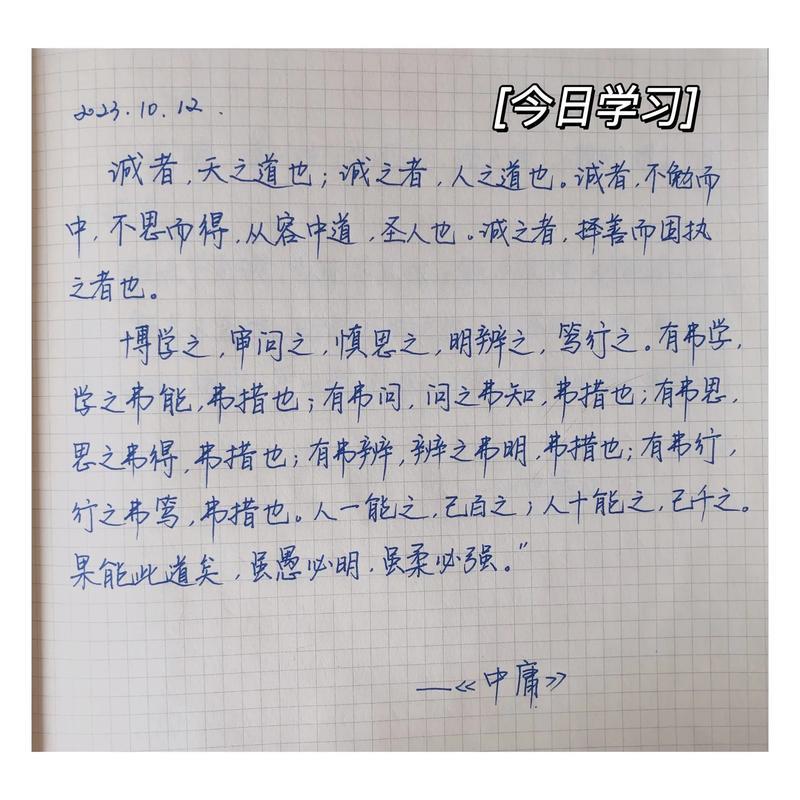 [今日学习]
2023.10.12.
诚者,天之道也;诚之者,人之道也。诚者,不勉而
中,不思而得,从容中道,圣人也。诚之者,择善而固执
之者也。
博学之,审问之,慎思之,明辨之,笃行之。有弗学,
学之弗能,弗措也;有弗问,问之弗知,弗措也;有弗思,
思之弗得,弗措也;有弗辨,辨之弗明,弗措也;有弗行,
行之弗笃,弗措也。人一能之,己百之;人十能之,己千之。
果能此道矣,虽愚必明,虽柔必强。”
——《中庸》